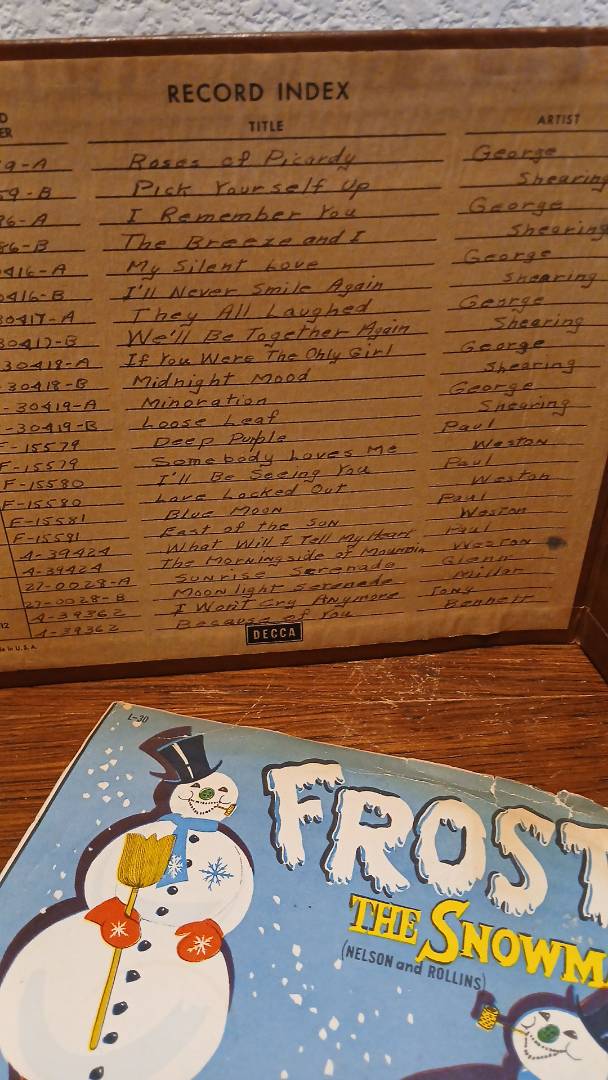 RECORD INDEX
D TITLE ARTIST
ER
9-A Roses of Picardy George
59-B Pick Yourself Up Shearing
86-A I Remember You George
86-B The Breeze and I Shearing
0416-A My Silent Love George
0416-B I'll Never Smile Again Shearing
30417-A They All Laughed George
30417-B We'll Be Together Again Shearing
30418-A If You Were The Only Girl George
-30418-B Midnight Mood Shearing
-30419-A Minoration George
-30419-B Loose Leaf Shearing
F-15579 Deep Purple Paul
F-15579 Somebody Loves Me Weston
F-15580 I'll Be Seeing You Paul
F-15580 Love Locked Out Weston
F-15581 Blue Moon Paul
F-15581 East of the Sun Weston
4-39424 What Will I Tell My Heart Paul
4-39424 The Morningside of Mountain Weston
27-0028-A Sunrise Serenado Glenn
27-0028-B Moonlight Serenade Millar
4-39362 I Won't Cry Anymore Tony
4-39362 Because of You Bennett
12
DECCA
de in U.S.A.
L-30
FROST
THE SNOWMA
(NELSON and ROLLINS)